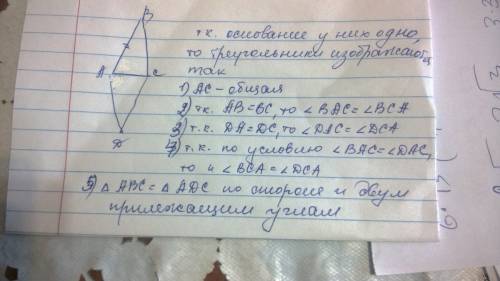 B
т.к. основание у них одно,
то треугольники изображаются
так
A
C
1) AC - общая
2) т.к. AB=BC, то ∠BAC=∠BCA
3) т.к. DA=DC, то ∠DAC=∠DCA
4) т.к. по условию ∠BAC=∠DAC,
то и ∠BCA=∠DCA
D
5) △ABC=△ADC по стороне и двум
прилежащим углам